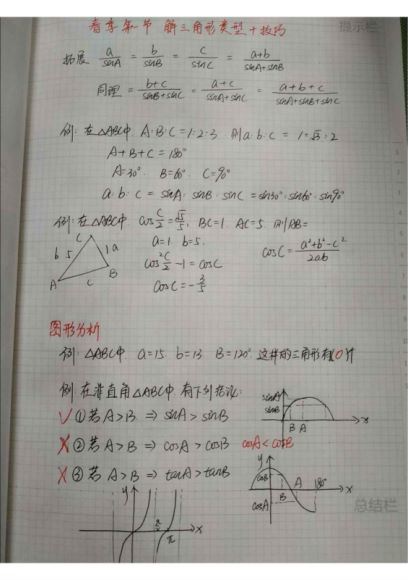 春季第一节 解三角形类型+技巧
提示栏
拓展 a/sinA = b/sinB = c/sinC = a+b/sinA+sinB
同理 = b+c/sinB+sinC = a+c/sinA+sinC = a+b+c/sinA+sinB+sinC
例: 在△ABC中 A:B:C=1:2:3 则a:b:c = 1:√3:2
A+B+C=180°
A=30° B=60° C=90°
a:b:c = sinA:sinB:sinC = sin30°:sin60°:sin90°
例: 在△ABC中 cos C/2 = √5/5, BC=1. AC=5. 则AB=
C b 5 1 a A c B
a=1 b=5.
cos² C/2 -1 = cosC
cosC = -3/5
cosC = a²+b²-c²/2ab
图形分析
例: △ABC中 a=15 b=13 B=120° 这样的三角形有0个
例 在非直角△ABC中 有下列结论:
√ ① 若A>B ⇒ sinA>sinB
sinA sinB B A x
X ② 若A>B ⇒ cosA>cosB cosA<cosB
X ③ 若A>B ⇒ tanA>tanB
y cosB cosA B A 180° x
y π/2 π x
总结栏